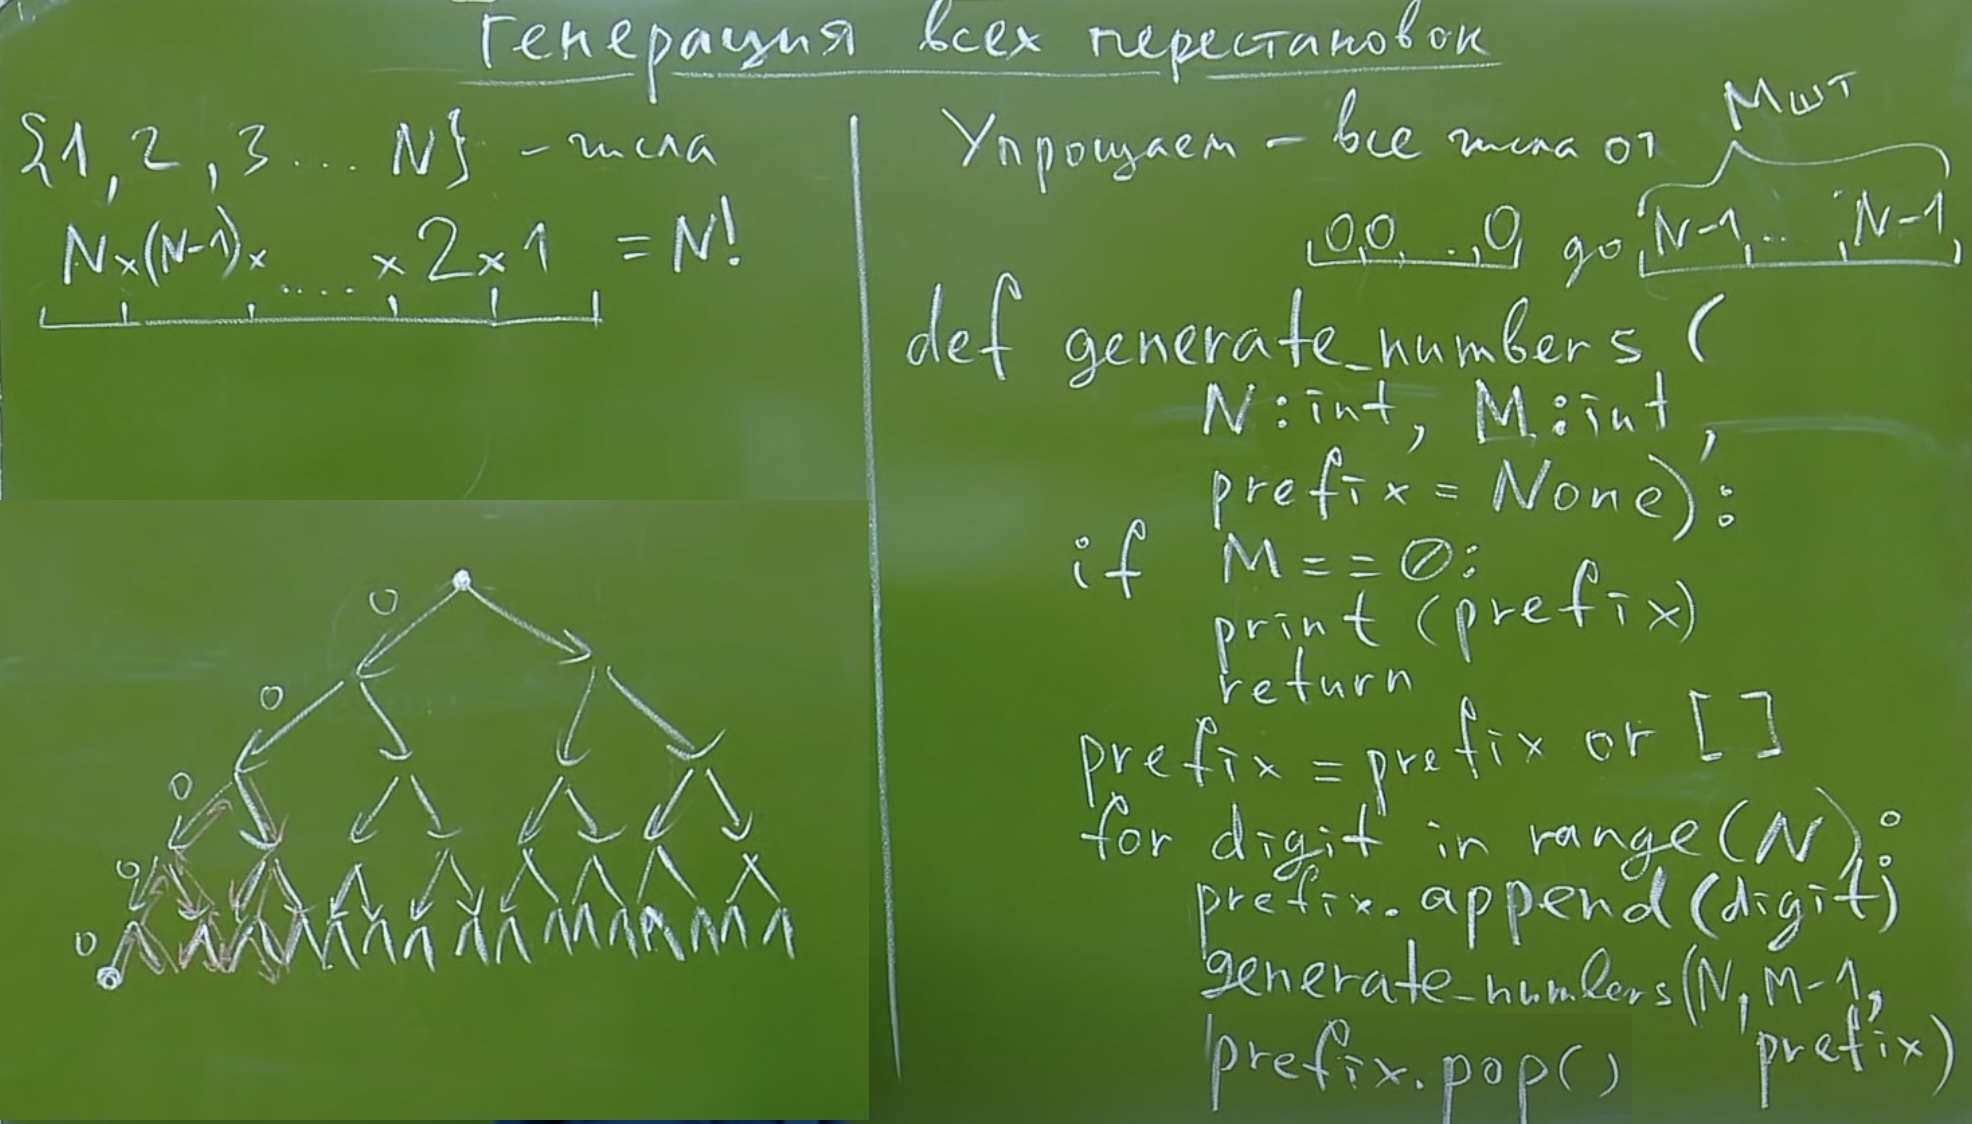 Генерация всех перестановок
{1, 2, 3 ... N} - числа
N×(N-1)× .... × 2 × 1 = N!
0
0
0
0
0
Упрощаем - все числа от
M шт
0,0, ..., 0 до N-1, ..., N-1
def generate_numbers (
N:int, M:int,
prefix = None):
if M == 0:
print (prefix)
return
prefix = prefix or []
for digit in range(N):
prefix.append(digit)
generate_numbers(N, M-1,
prefix)
prefix.pop()